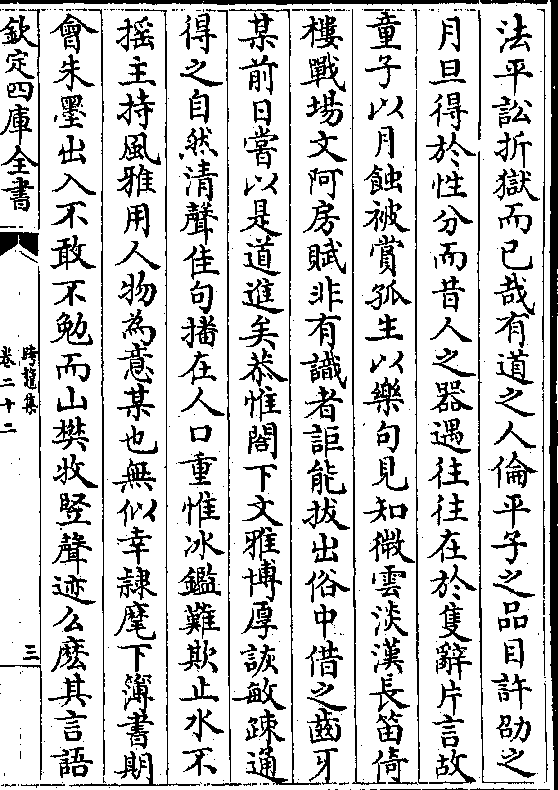 法平訟折獄而已哉有道之人倫平子之品目許劭之
月旦得於性分而昔人之器遇往往在於隻辭片言故
童子以月蝕被賞孤生以樂句見知微雲淡漢長笛倚
樓戰場文阿房賦非有識者詎能拔出俗中借之齒牙
某前日嘗以是道進矣恭惟閤下文雅博厚詼敏疎通
得之自然清聲佳句播在人口重惟冰鑑難欺止水不
摇主持風雅用人物為意某也無似幸隷麾下簿書期
會朱墨出入不敢不勉而山樊牧竪聲迹么麽其言語
欽定四庫全書
跨鼇集
卷二十二
三